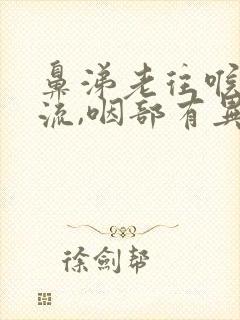 鼻涕老往喉
流,咽部有異
徐劍幫